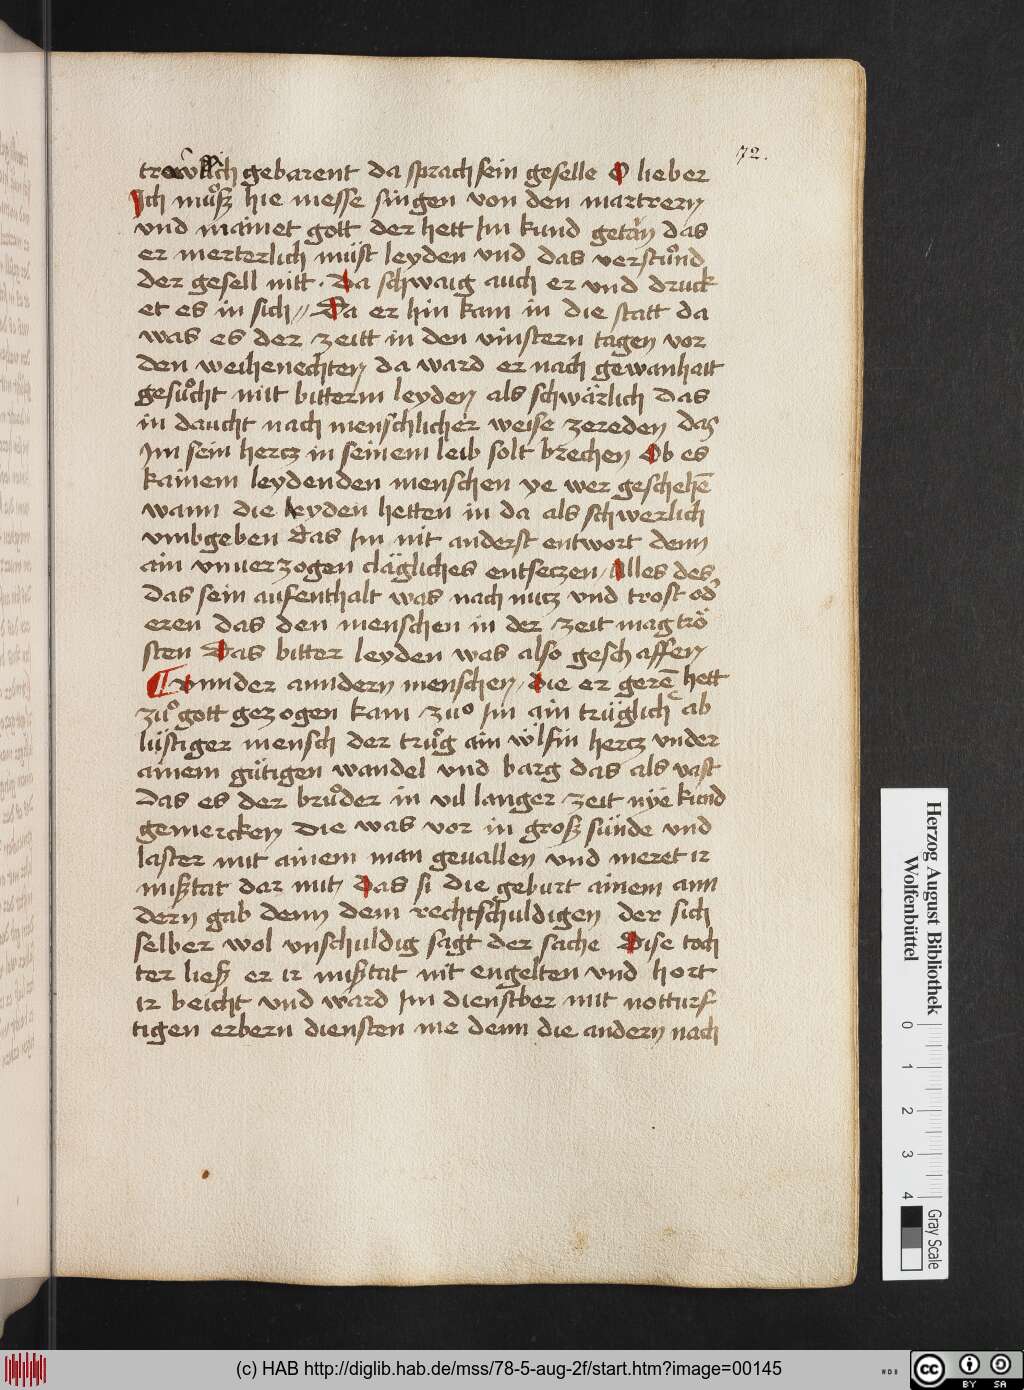 72.
gebarent da sprach sein geselle O lieber
Ich muͦß hie messe singen von den martrern
vnd mainet gott der hett Im kund getan das
er merterlich muͤst leyden vnd das verstuͦnd
der gesell nitt · Da schwaig auch er vnd druck
et es in sich // Da er hin kam in die statt da
was es der zeitt in den vinstern tagen vor
den weihenechten da ward er nach gewanheit
gesuͦcht mit bitterm leyden als schwaͤrlich das
in daucht nach menschlicher weise zereden das
Im sein hercz in seinem leib solt brechen Ob es
kainem leydenden menschen ye wer geschehē
wann die leyden hetten in da als schwerlich
vmbgeben das Im nit anderst entwort denn
ain vnuerzogen claͤgliches entseczen / Alles des
das sein aufenthalt was nach nucz vnd trost od
eren das den menschen in der zeit mag troͤ
sten Das bitter leyden was also geschaffen
¶ vnnder anndern menschen / die er gerē hett
zuͦ gott gezogen kam zuͦ Im ain truͤglich ab
luͤstiger mensch der truͦg ain woͤlfin hercz vnder
ainem guͤtigen wandel vnd barg das als vast
das es der bruͦder in vil langer zeit nye kund
gemercken die was vor in groß suͤnde vnd
laster mit ainem man geuallen vnd meret ir
mißtat dar mit / das si die geburt ainem ann
dern gab denn dem rechtschuldigen der sich
selber wol vnschuldig sagt der sache Dise toch
ter ließ er ir mißtat nit engelten vnd hort
ir beicht vnd ward Im dienstber mit notturf
tigen erbern diensten me denn die andern nach
Herzog August Bibliothek
Wolfenbüttel
0 1 2 3 4
Gray Scale
(c) HAB http://diglib.hab.de/mss/78-5-aug-2f/start.htm?image=00145
cc BY SA